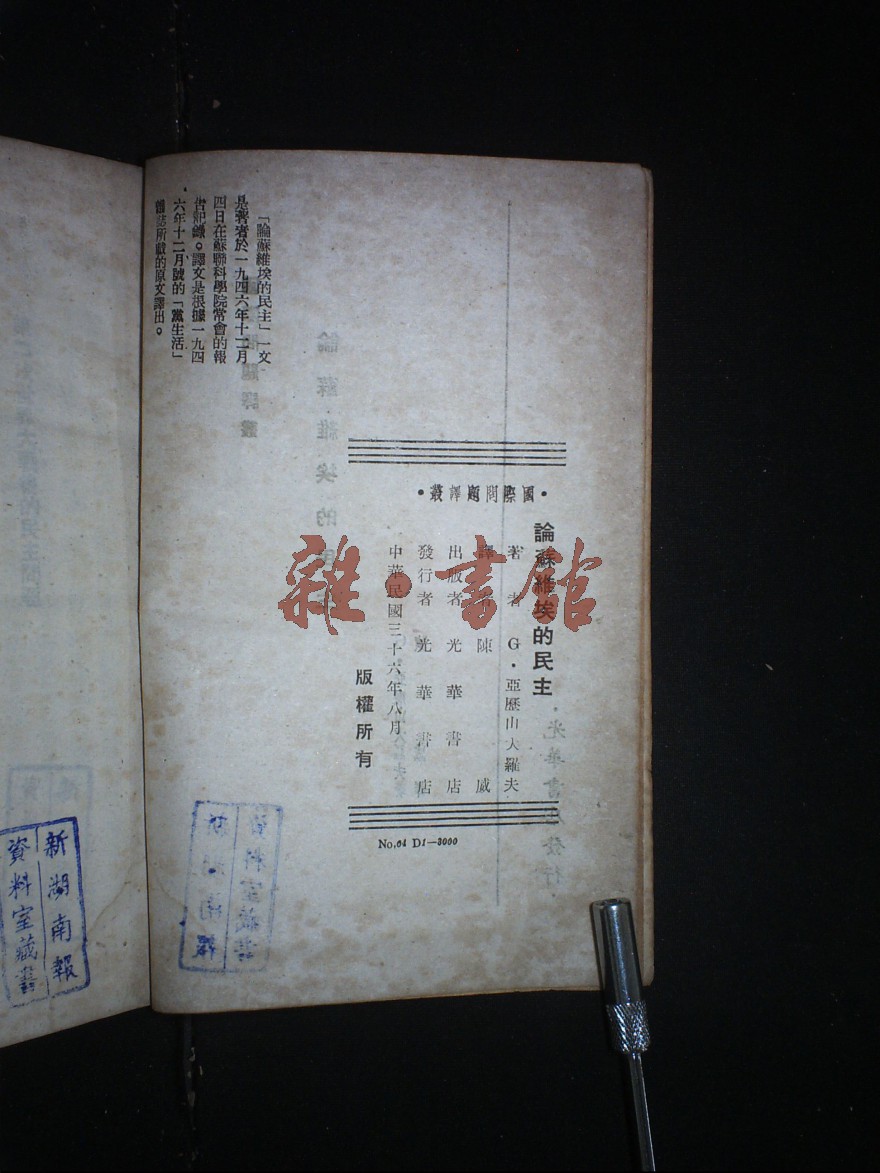 •國際問題譯叢•
論蘇維埃的民主
著者 G•亞歷山大羅夫
譯者 陳威
出版者 光華書店
發行者 光華書店
中華民國三十六年八月
版權所有
No.04 D1—3000
「論蘇維埃的民主」一文
是著者於一九四六年十二月
四日在蘇聯科學院常會的報
告紀錄。譯文是根據一九四
六年十二月號的「黨生活」
雜誌所載的原文譯出。
新湖南報
資料室藏書
雜•書館
論蘇維埃的
光華書店發行